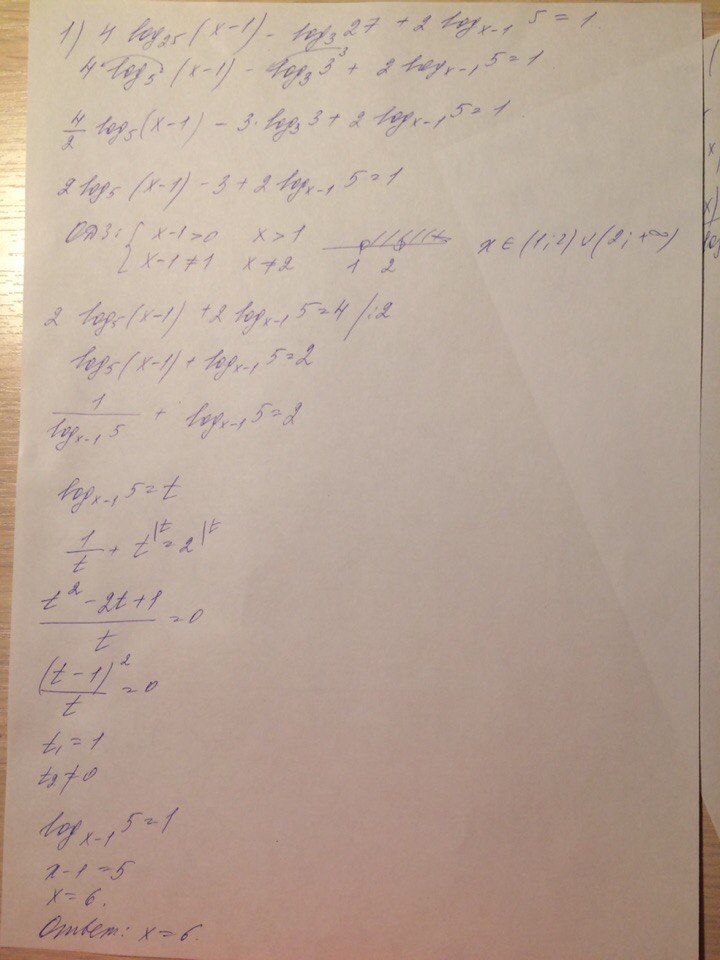 1) 4 log₂₅(x-1) - log₃27 + 2 logₓ₋₁5 = 1
4 log₅(x-1) - log₃3³ + 2 logₓ₋₁5 = 1
4/2 log₅(x-1) - 3·log₃3 + 2 logₓ₋₁5 = 1
2 log₅(x-1) - 3 + 2 logₓ₋₁5 = 1
ОДЗ: { x-1>0 x>1
x-1≠1 x≠2 1 2 x∈(1;2)∪(2;+∞)
2 log₅(x-1) + 2 logₓ₋₁5 = 4 /:2
log₅(x-1) + logₓ₋₁5 = 2
1/logₓ₋₁5 + logₓ₋₁5 = 2
logₓ₋₁5 = t
1/t + t|t = 2|t
(t²-2t+1)/t = 0
(t-1)²/t = 0
t₁ = 1
t₂ ≠ 0
logₓ₋₁5 = 1
x-1 = 5
x = 6.
Ответ: x = 6.